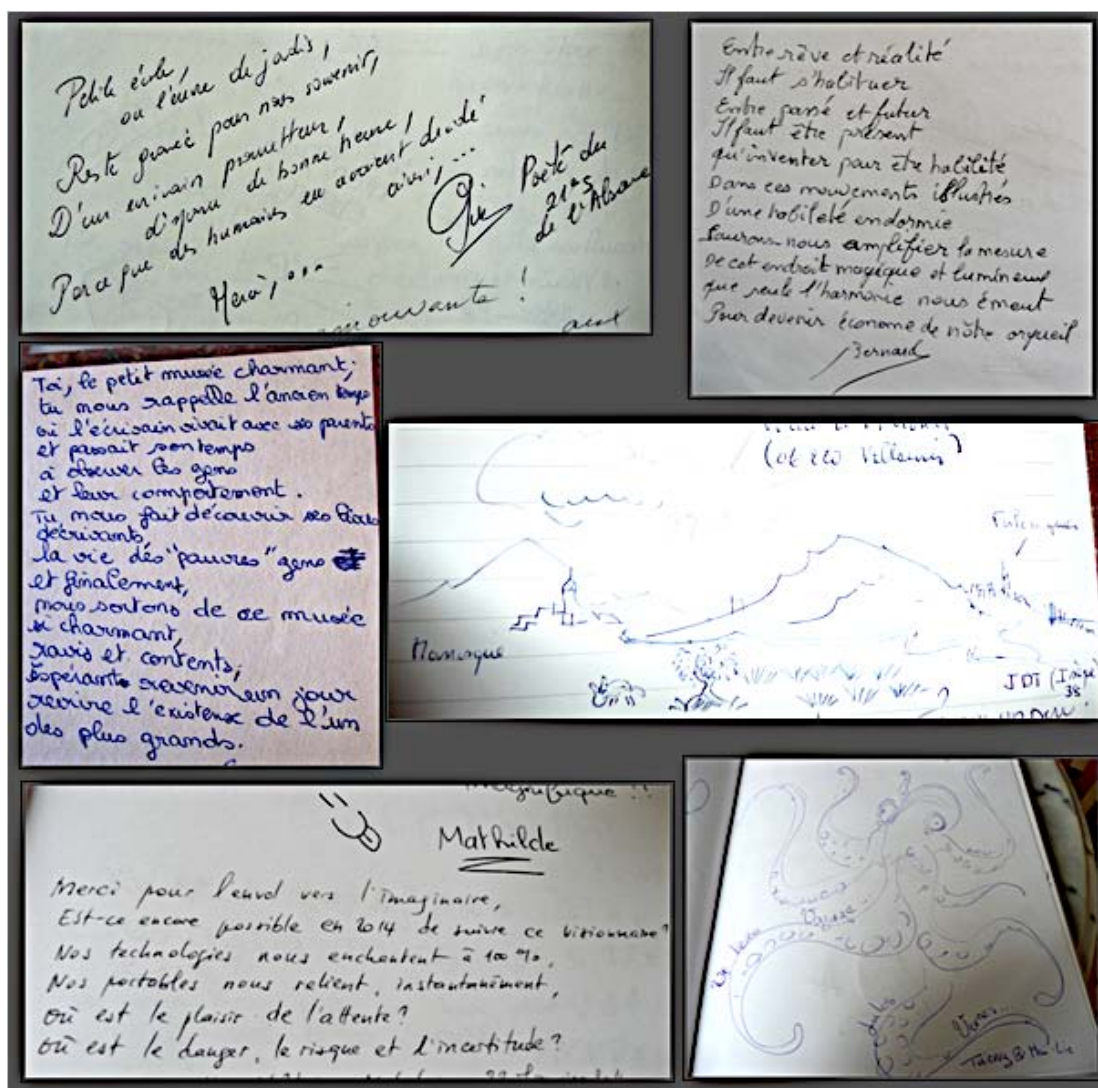 Petite école,
ou l'encre de jadis,
Reste gravée pour nous souvenir,
D'un écrivain prometteur,
disparu de bonne heure,
Parce que des humains en avaient décidé
ainsi,...
Merci, ...
Poète du
21e S
de l'Alsace
émouvante !
aux
Entre rêve et réalité
Il faut s'habituer
Entre passé et futur
Il faut être présent
qu'inventer pour être habilité
Dans ces mouvements illustrés
D'une habileté endormie
Saurons-nous amplifier la mesure
De cet endroit magique et lumineux
que seule l'harmonie nous émeut
Pour devenir économe de nôtre orgueil
Bernard
Toi, le petit musée charmant,
tu nous rappelle l'ancien temps
où l'écrivain vivait avec ses parents
et passait son temps
à observer les gens
et leur comportement.
Tu nous fait découvrir ses livres
décrivants
la vie dés "pauvres" gens
et finalement,
nous sortons de ce musée
si charmant,
ravis et contents,
Espérants revenir un jour
revivre l'existence de l'un
des plus grands.
Manosque
JDI (Isère
38
Magnifique !!
Mathilde
Merci pour l'envol vers l'imaginaire,
Est-ce encore possible en 2014 de suivre ce visionnaire?
Nos technologies nous enchantent à 100 %,
Nos portables nous relient, instantanément,
Où est le plaisir de l'attente?
Où est le danger, le risque et l'incertitude?
Jules
Verne...